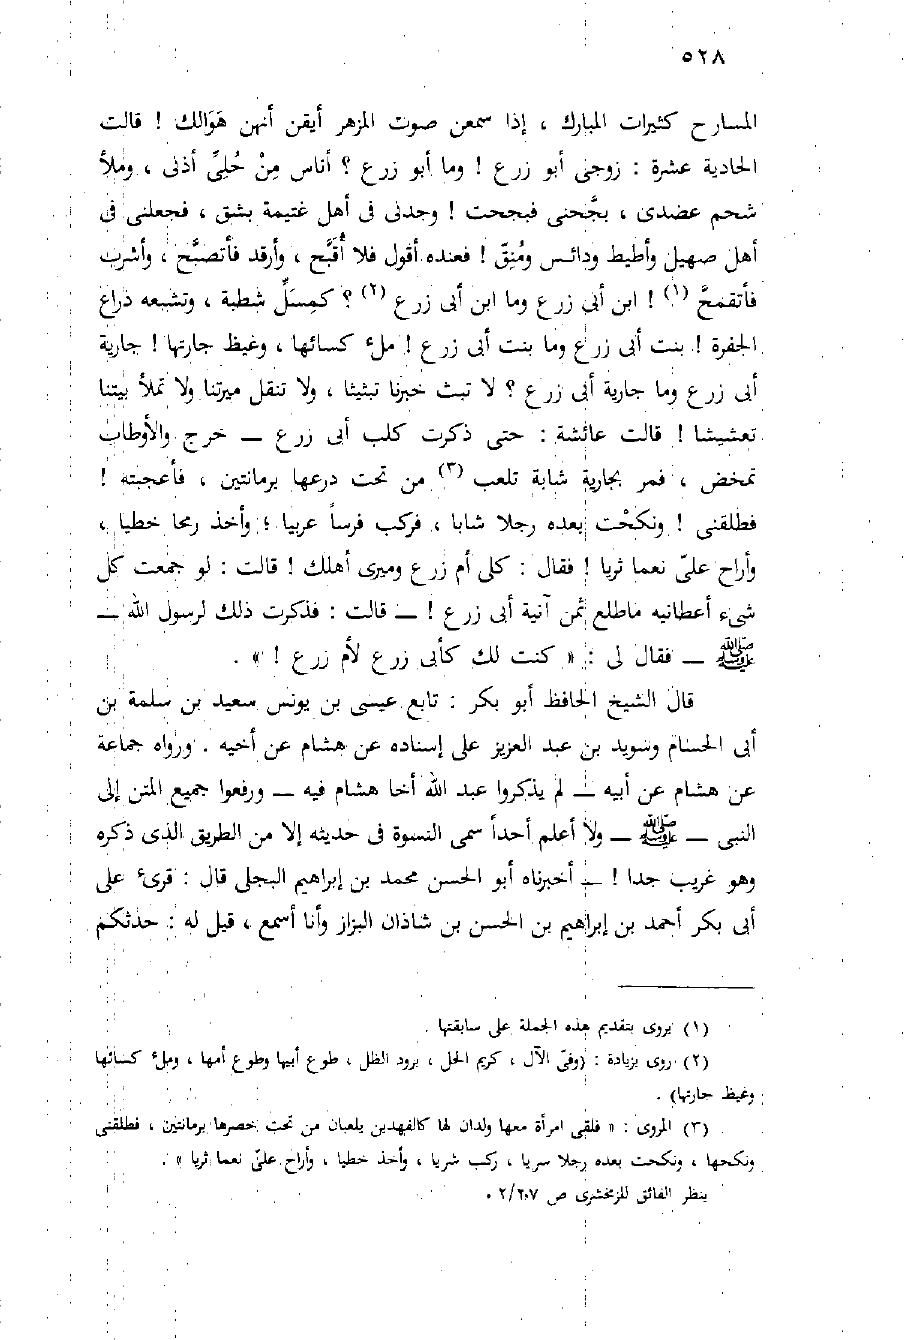 ٥٢٨
المسارح كثيرات المبارك ، إذا سمعن صوت المزهر أيقن أنهن هَوَالك ! قالت
الحادية عشرة : زوجى أبو زرع ! وما أبو زرع ؟ أناس مِنْ حُلِىِّ أذنى ، وملأ
شحم عضدى ، بجَّحنى فبجحت ! وجدنى فى أهل غنيمة بشق ، فجعلنى فى
أهل صهيل وأطيط ودائس ومُنِقّ ! فعنده أقول فلا أُقَبَّح ، وأرقد فأتصبَّح ، وأشرب
فأتقمحَّ (١) ! ابن أبى زرع وما ابن أبى زرع (٢) ؟ كمِسَلِّ شطبة ، وتشبعه ذراع
الجفرة ! بنت أبى زرع وما بنت أبى زرع ! ملء كسائها ، وغيظ جارتها ! جارية
أبى زرع وما جارية أبى زرع ؟ لا تبث خبرنا تبثيثا ، ولا تنقل ميرتنا ولا تملأ بيتنا
تعشيشا ! قالت عائشة : حتى ذكرت كلب أبى زرع ــ خرج والأوطاب
تمخض ، فمر بجارية شابة تلعب (٣) من تحت درعها برمانتين ، فأعجبته !
فطلقنى ! ونكحْت بعده رجلا شابا ، فركب فرساً عربيا ؛ وأخذ رمحا خطيا ،
وأراح علىّ نعما ثريا ! فقال : كلى أم زرع وميرى أهلك ! قالت : لو جمعت كل
شىء أعطانيه ماطلع ثمن آنية أبى زرع ! ــ قالت : فذكرت ذلك لرسول الله ــ
ﷺ ــ فقال لى : « كنت لك كأبى زرع لأم زرع ! » .
قال الشيخ الحافظ أبو بكر : تابع عيسى بن يونس سعيد بن سلمة بن
أبى الحسام وسويد بن عبد العزيز على إسناده عن هشام عن أخيه . ورواه جماعة
عن هشام عن أبيه ــ لم يذكروا عبد الله أخا هشام فيه ــ ورفعوا جميع المتن إلى
النبى ــ ﷺ ــ ولا أعلم أحداً سمى النسوة فى حديثه إلا من الطريق الذى ذكره
وهو غريب جدا ! ــ أخبرناه أبو الحسن محمد بن إبراهيم البجلى قال : قرئ على
أبى بكر أحمد بن إبراهيم بن الحسن بن شاذان البزاز وأنا أسمع ، قيل له : حدثكم
(١) يروى بتقديم هذه الجملة على سابقتها .
(٢) روى بزيادة : (وفىّ الآل ، كريم الخل ، برود الظل ، طوع أبيها وطوع أمها ، وملء كسائها
وغيظ جارتها) .
(٣) المروى : « فلقى امرأة معها ولدان لها كالفهدين يلعبان من تحت خصرها برمانتين ، فطلقنى
ونكحها ، ونكحت بعده رجلا سريا ، ركب شريا ، وأخذ خطيا ، وأراح علىّ نعما ثريا » .
ينظر الفائق للزمخشرى ص ٢/٢٠٧ .